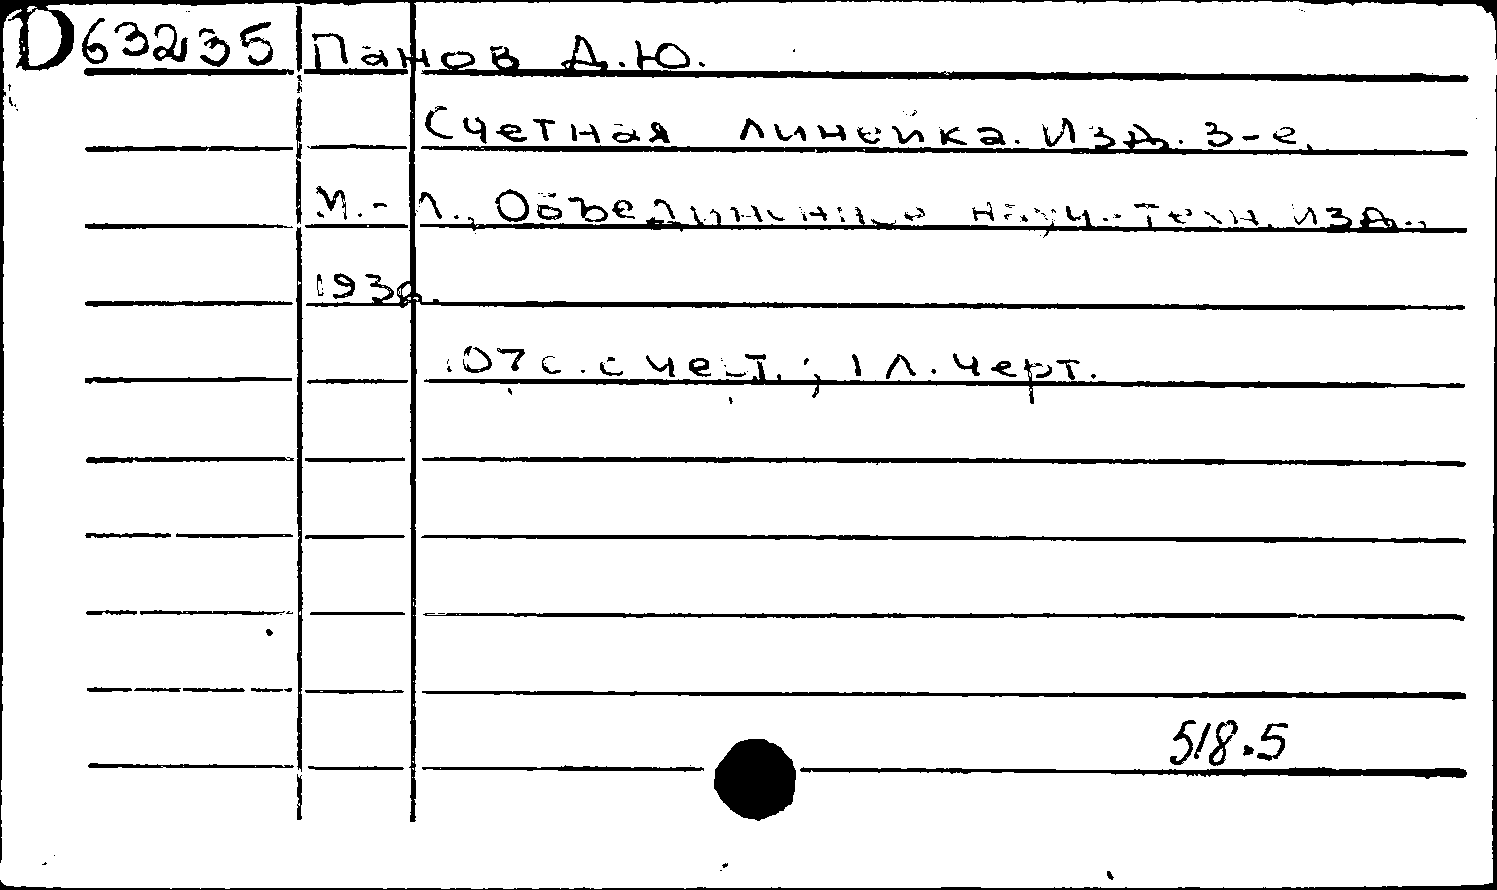 D63235 Панов Д.Ю.
Счетная линейка. Изд. 3-е.
М.-Л., Объединенное науч.-техн. изд.,
107 с. с черт.; 1 л. черт.
518.5